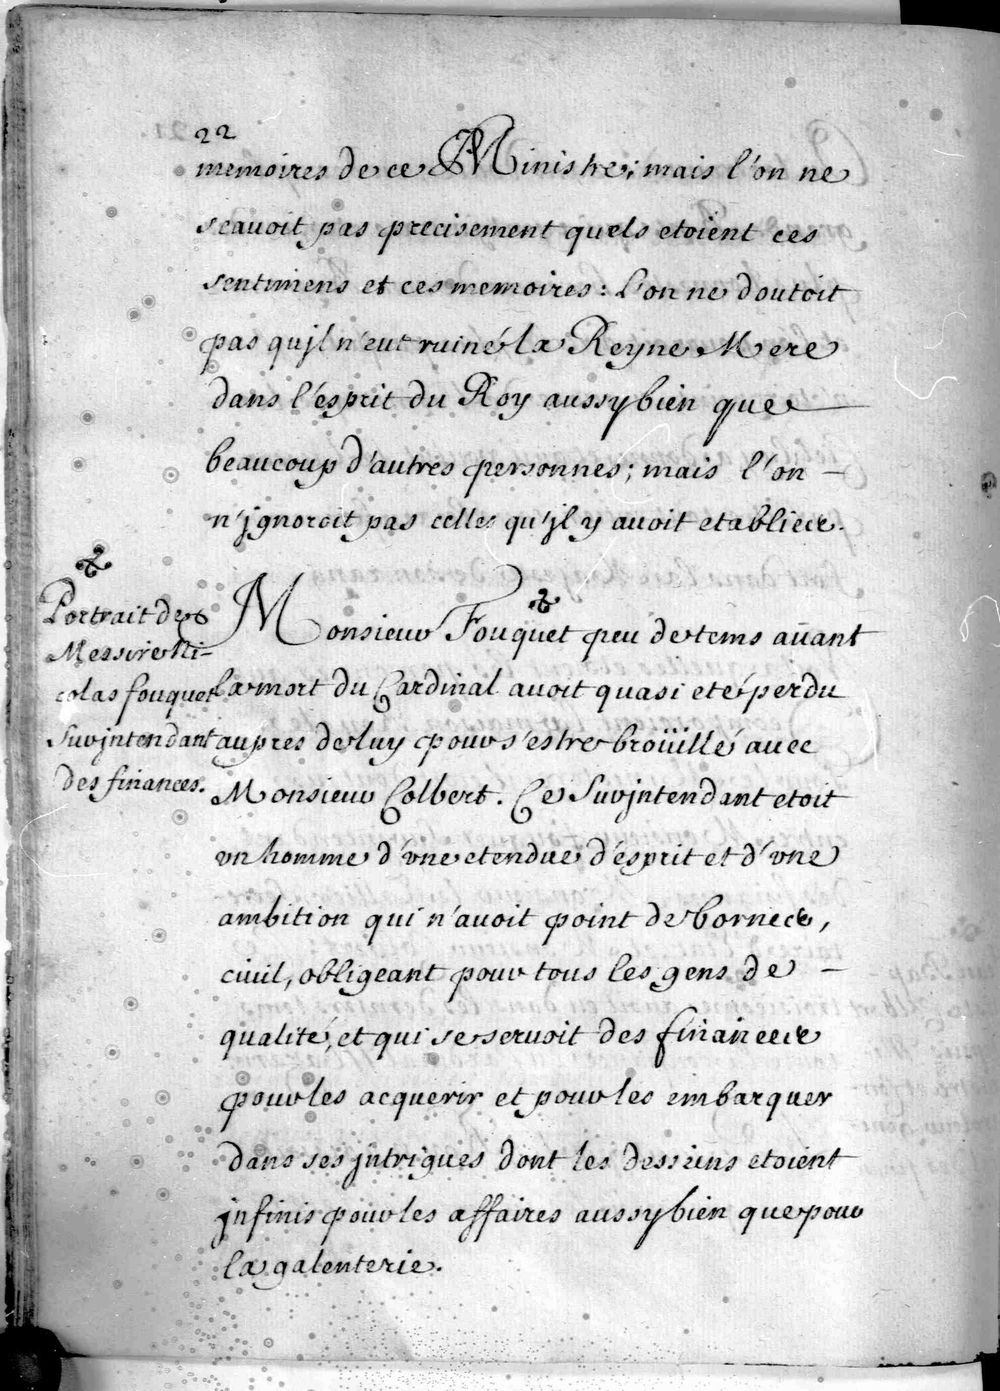 22
memoires de ce Ministre; mais l'on ne
scavoit pas precisement quels etoient ces
sentimens et ces memoires: l'on ne doutoit
pas qu'jl n'eut ruiné la Reyne Mere
dans l'esprit du Roy aussy bien que
beaucoup d'autres personnes; mais l'on
n'jgnoroit pas celles qu'jl y avoit etablies.
Portrait de
Messire Ni-
colas fouquet
Surjntendant
des finances.
Monsieur Fouquet peu de tems avant
la mort du Cardinal avoit quasi eté perdu
aupres de luy pour s'estre broüillé avec
Monsieur Colbert. Ce Surjntendant etoit
vn homme d'vne etendue d'esprit et d'vne
ambition qui n'avoit point de bornes,
civil, obligeant pour tous les gens de
qualité, et qui se servoit des finances
pour les acquerir et pour les embarquer
dans ses jntrigues dont les desseins etoient
jnfinis pour les affaires aussy bien que pour
la galenterie.